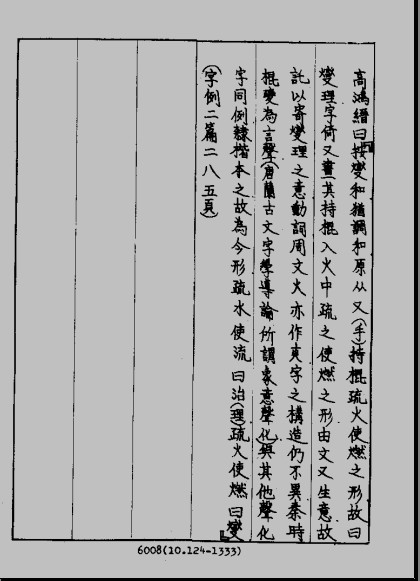 高鴻縉曰按燮和猶調和原从又(手)持棍疏火使燃之形故曰
燮理字倚又畫其持棍入火中疏之使燃之形由文又生意故
託以寄燮理之意動詞周文火亦作炎字之構造仍不異秦時
棍變為言聲(唐蘭古文字學導論所謂象意聲化)與其他聲化
字同例隸楷本之故為今形疏水使流曰治(理)疏火使燃曰燮
(字例二篇二八五頁)
6008(10.124-1333)